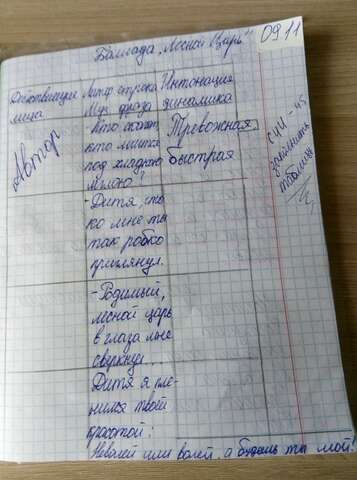 09.11
Баллада „Лесной Царь"
Действующие лица
Автор строка
Муз. фраза
Интонация
динамика
Автор
Кто скачет,
кто мчится
под хладною
мглою?
Тревожная,
быстрая
- Дитя, что
ко мне ты
так робко
прильнул.
- Родимый,
лесной царь
в глаза мне
сверкнул.
Дитя я пле-
нился твоей
красотой:
Неволей или волей, а будешь ты мой!
заполнить
таблицу